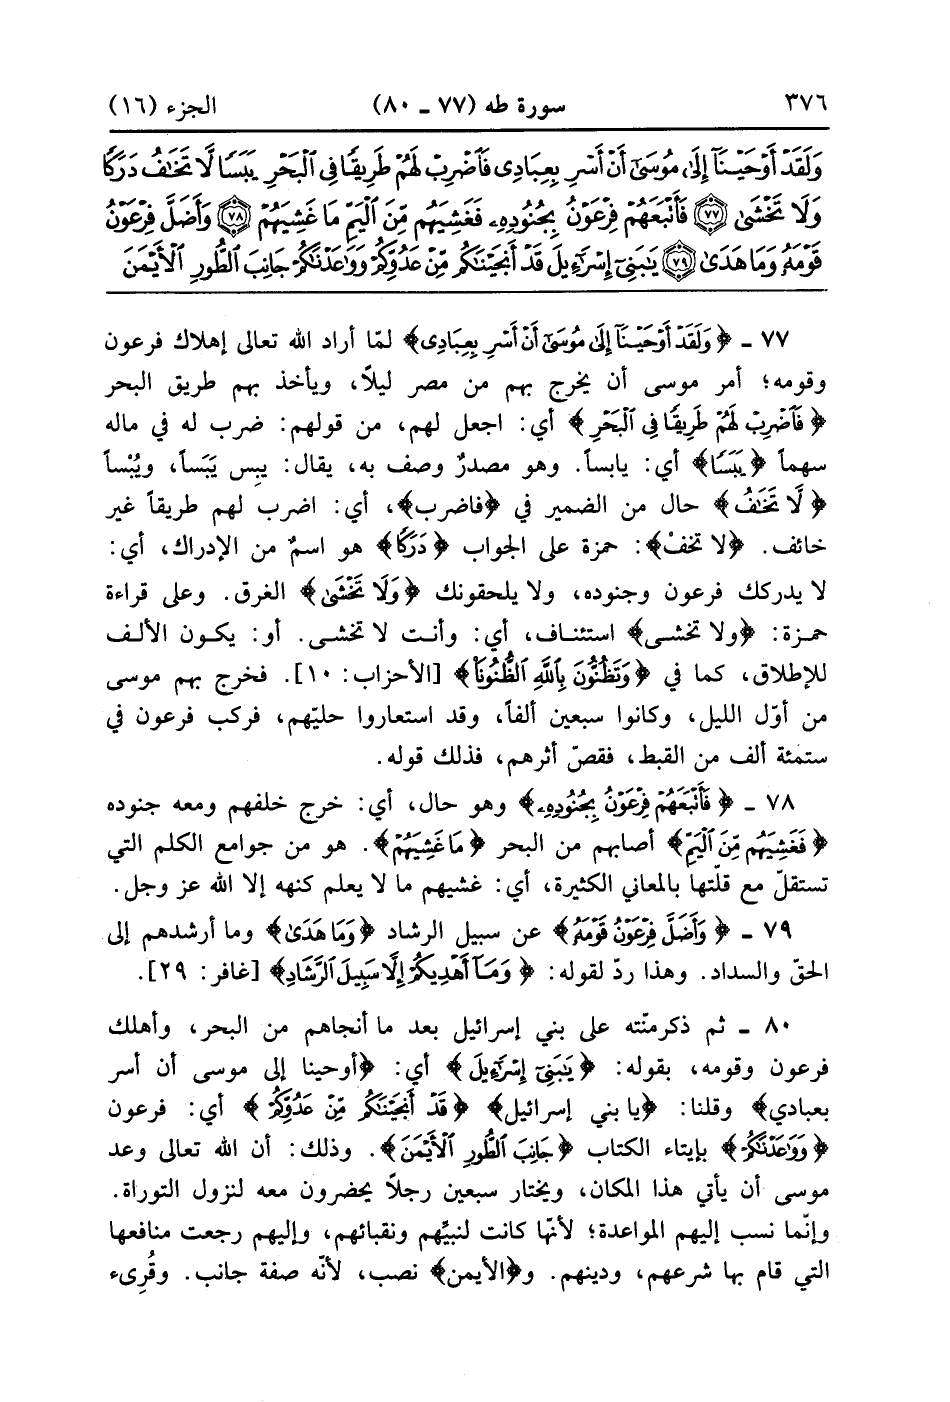 ٣٧٦ سورة طه (٧٧ ـ ٨٠) الجزء (١٦)
وَلَقَدْ أَوْحَيْنَآ إِلَىٰ مُوسَىٰٓ أَنْ أَسْرِ بِعِبَادِى فَٱضْرِبْ لَهُمْ طَرِيقًا فِى ٱلْبَحْرِ يَبَسًا لَّا تَخَٰفُ دَرَكًا
وَلَا تَخْشَىٰ ﴿٧٧﴾ فَأَتْبَعَهُمْ فِرْعَوْنُ بِجُنُودِهِۦ فَغَشِيَهُم مِّنَ ٱلْيَمِّ مَا غَشِيَهُمْ ﴿٧٨﴾ وَأَضَلَّ فِرْعَوْنُ
قَوْمَهُۥ وَمَا هَدَىٰ ﴿٧٩﴾ يَٰبَنِىٓ إِسْرَٰٓءِيلَ قَدْ أَنجَيْنَٰكُم مِّنْ عَدُوِّكُمْ وَوَٰعَدْنَٰكُمْ جَانِبَ ٱلطُّورِ ٱلْأَيْمَنَ
٧٧ ـ ﴿وَلَقَدْ أَوْحَيْنَآ إِلَىٰ مُوسَىٰٓ أَنْ أَسْرِ بِعِبَادِى﴾ لمّا أراد الله تعالى إهلاك فرعون
وقومه؛ أمر موسى أن يخرج بهم من مصر ليلاً، ويأخذ بهم طريق البحر
﴿فَٱضْرِبْ لَهُمْ طَرِيقًا فِى ٱلْبَحْرِ﴾ أي: اجعل لهم، من قولهم: ضرب له في ماله
سهماً ﴿يَبَسًا﴾ أي: يابساً. وهو مصدرٌ وصف به، يقال: يبِس يَبَساً، ويُبْساً
﴿لَّا تَخَٰفُ﴾ حال من الضمير في ﴿فاضرب﴾، أي: اضرب لهم طريقاً غير
خائف. ﴿لا تخفْ﴾: حمزة على الجواب ﴿دَرَكًا﴾ هو اسمٌ من الإدراك، أي:
لا يدركك فرعون وجنوده، ولا يلحقونك ﴿وَلَا تَخْشَىٰ﴾ الغرق. وعلى قراءة
حمزة: ﴿ولا تخشى﴾ استئناف، أي: وأنت لا تخشى. أو: يكون الألف
للإطلاق، كما في ﴿وَتَظُنُّونَ بِٱللَّهِ ٱلظُّنُونَا۠﴾ [الأحزاب: ١٠]. فخرج بهم موسى
من أوّل الليل، وكانوا سبعين ألفاً، وقد استعاروا حليّهم، فركب فرعون في
ستمئة ألف من القبط، فقصّ أثرهم، فذلك قوله.
٧٨ ـ ﴿فَأَتْبَعَهُمْ فِرْعَوْنُ بِجُنُودِهِۦ﴾ وهو حال، أي: خرج خلفهم ومعه جنوده
﴿فَغَشِيَهُم مِّنَ ٱلْيَمِّ﴾ أصابهم من البحر ﴿مَا غَشِيَهُمْ﴾. هو من جوامع الكلم التي
تستقلّ مع قلّتها بالمعاني الكثيرة، أي: غشيهم ما لا يعلم كنهه إلا الله عز وجل.
٧٩ ـ ﴿وَأَضَلَّ فِرْعَوْنُ قَوْمَهُۥ﴾ عن سبيل الرشاد ﴿وَمَا هَدَىٰ﴾ وما أرشدهم إلى
الحقّ والسداد. وهذا ردّ لقوله: ﴿وَمَآ أَهْدِيكُمْ إِلَّا سَبِيلَ ٱلرَّشَادِ﴾ [غافر: ٢٩].
٨٠ ـ ثم ذكر منّته على بني إسرائيل بعد ما أنجاهم من البحر، وأهلك
فرعون وقومه، بقوله: ﴿يَٰبَنِىٓ إِسْرَٰٓءِيلَ﴾ أي: ﴿أوحينا إلى موسى أن أسر
بعبادي﴾ وقلنا: ﴿يا بني إسرائيل﴾ ﴿قَدْ أَنجَيْنَٰكُم مِّنْ عَدُوِّكُمْ﴾ أي: فرعون
﴿وَوَٰعَدْنَٰكُمْ﴾ بإيتاء الكتاب ﴿جَانِبَ ٱلطُّورِ ٱلْأَيْمَنَ﴾. وذلك: أن الله تعالى وعد
موسى أن يأتي هذا المكان، ويختار سبعين رجلاً يحضرون معه لنزول التوراة.
وإنّما نسب إليهم المواعدة؛ لأنّها كانت لنبيّهم ونقبائهم، وإليهم رجعت منافعها
التي قام بها شرعهم، ودينهم. و﴿الأيمن﴾ نصب، لأنّه صفة جانب. وقُرِىء